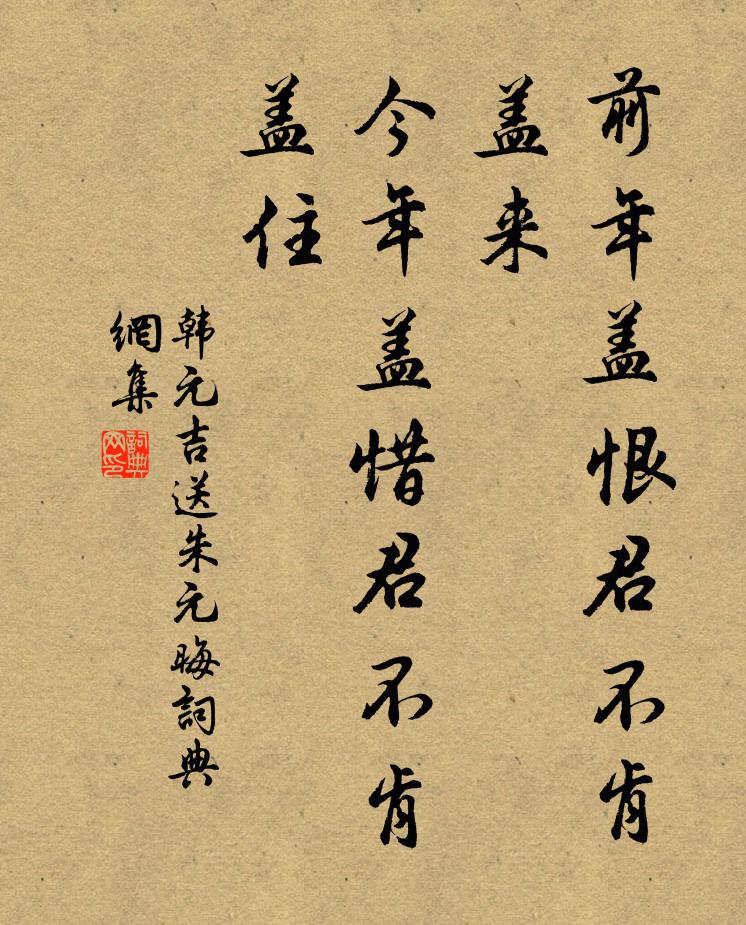 前年盖恨君不肯
盖来
今年盖惜君不肯
盖住
韩元吉送朱元晦詞典
網集
詞典
网印